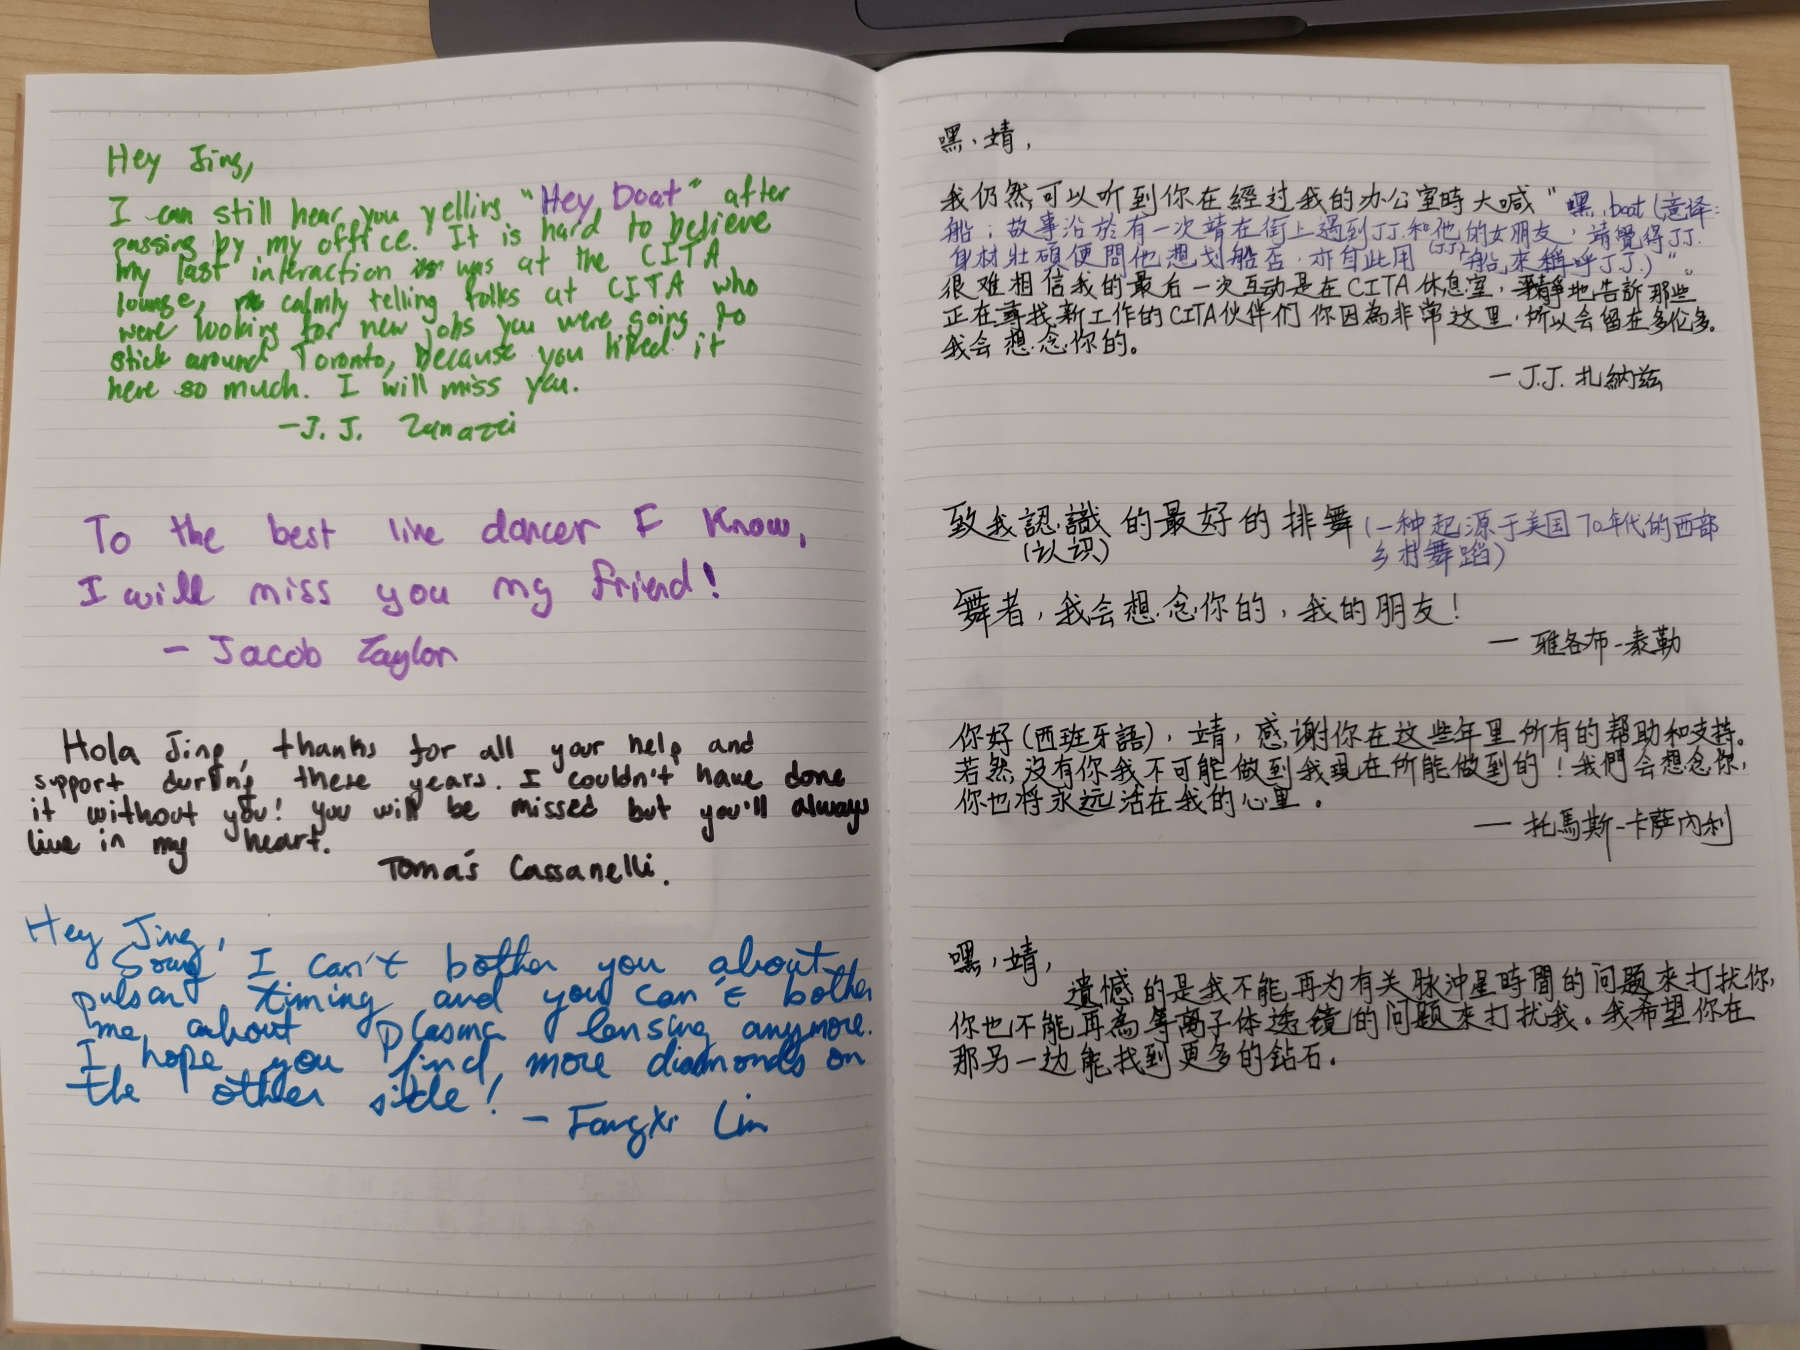 Hey Jing,
I can still hear you yelling "Hey Boat" after
passing by my office. It is hard to believe
my last interaction was at the CITA
lounge, calmly telling folks at CITA who
were looking for new jobs you were going to
stick around Toronto, because you liked it
here so much. I will miss you.
-J. J. Zanazzi
To the best line dancer I know,
I will miss you my friend!
- Jacob Taylor
Hola Jing, thanks for all your help and
support during these years. I couldn't have done
it without you! you will be missed but you'll always
live in my heart.
Tomás Cassanelli.
Hey Jing,
Sorry I can't bother you about
pulsar timing and you can't bother
me about plasma lensing anymore.
I hope you find more diamonds on
the other side!
- Fangxi Lin
嘿,靖,
我仍然可以听到你在經过我的办公室時大喊"嘿,boat(意译:
船;故事沿於有一次靖在街上遇到J.J.和他的女朋友,靖覺得J.J.
身材壯碩便問他想划船否,亦自此用(J.J.)船來稱呼J.J.)"。
很难相信我的最后一次互动是在CITA休息室,靜地告訴那些
正在尋找新工作的CITA伙伴们你因為非常这里,所以会留在多伦多。
我会想念你的。
— J.J. 扎納兹
致我認識的最好的排舞(一种起源于美国70年代的西部
(认识) 乡村舞蹈)
舞者,我会想念你的,我的朋友!
— 雅各布-泰勒
你好(西班牙語),靖,感謝你在这些年里所有的帮助和支持。
若然没有你我不可能做到我現在所能做到的!我們会想念你,
你也将永远活在我的心里。
— 托馬斯-卡萨內利
嘿,靖,
遺憾的是我不能再为有关脉冲星時間的问题來打扰你,
你也不能再為等离子体透镜的问题來打扰我。我希望你在
那另一边能找到更多的鈷石。